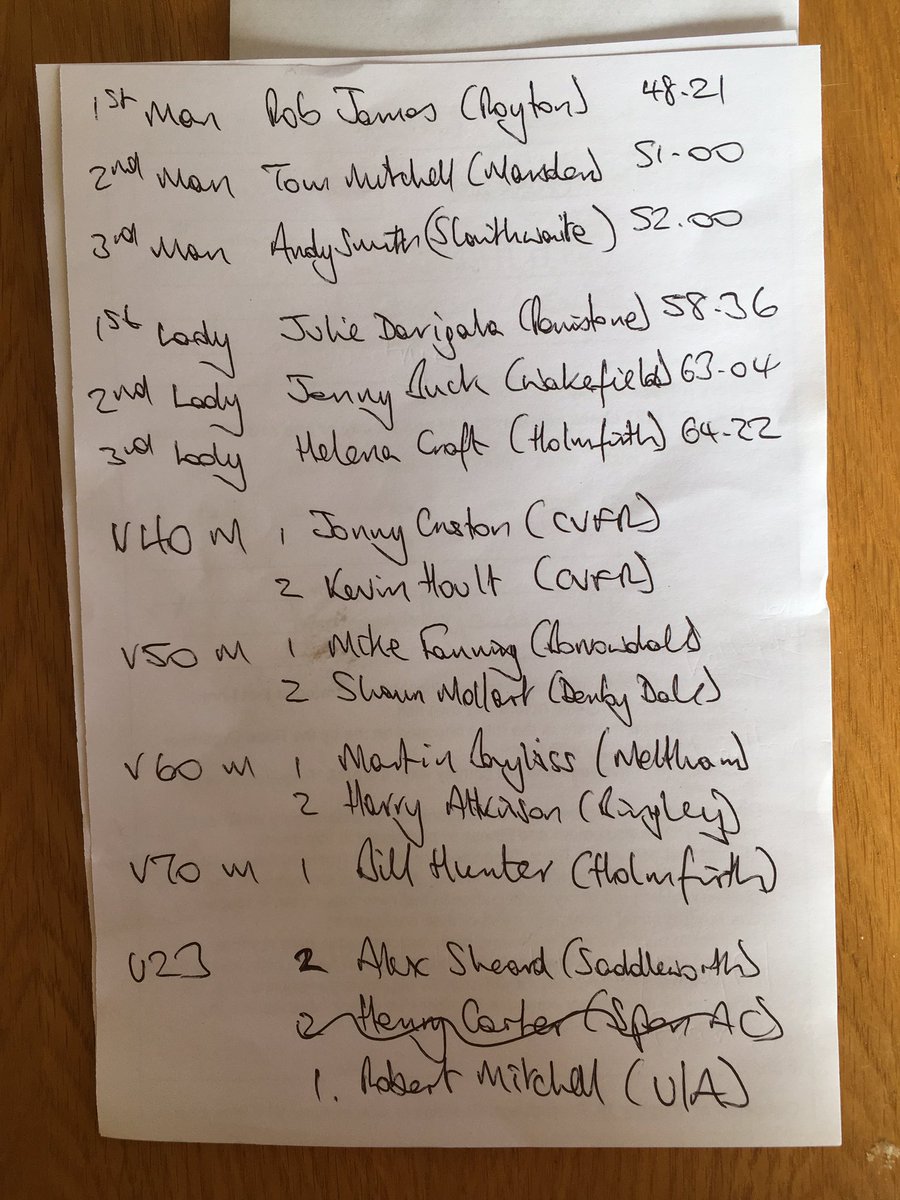 1st Man Rob James (Royton) 48-21
2nd Man Tom Mitchell (Marsden) 51-00
3rd Man Andy Smith (Slaithwaite) 52.00
1st Lady Julie Darigala (Penistone) 58-36
2nd Lady Jenny Buck (Wakefield) 63-04
3rd Lady Helena Croft (Holmfirth) 64-22
V40 M 1 Jonny Cruston (CVFR)
2 Kevin Hoult (CVFR)
V50 M 1 Mike Fanning (Borrowdale)
2 Shaun Mollart (Denby Dale)
V60 M 1 Martin Bayliss (Meltham)
2 Harry Atkinson (Bingley)
V70 M 1 Bill Hunter (Holmfirth)
U23 2 Alex Sheard (Saddleworth)
2 Henry Carter (Spen AC)
1. Robert Mitchell (U/A)